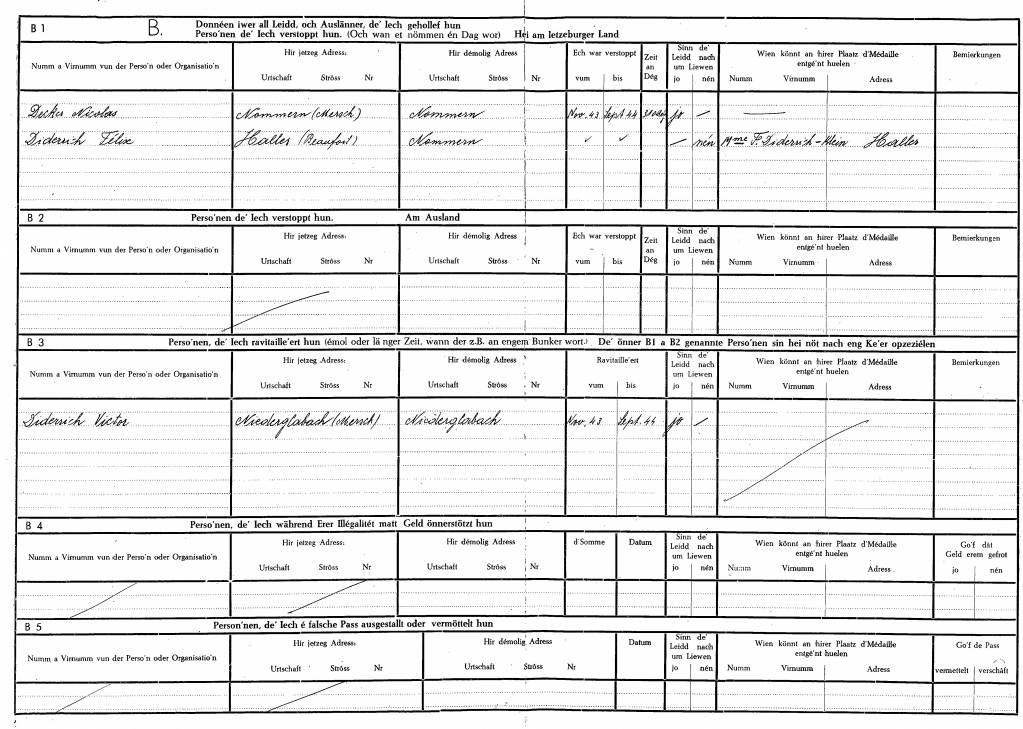 B 1 B. Donnéen iwer all Leidd, och Auslänner, de' Iech gehollef hun
Perso'nen de' Iech verstoppt hun. (Och wan et nömmen én Dag wor) Hei am letzeburger Land
Numm a Virnumm vun der Perso'n oder Organisatio'n Hir jetzeg Adress: Hir démolig Adress Ech war verstoppt Zeit an Dég Sinn de' Leidd nach um Liewen Wien könnt an hirer Plaatz d'Médaille entgé'nt huelen Bemierkungen
Urtschaft Ströss Nr Urtschaft Ströss Nr vum bis jo nén Numm Virnumm Adress
Decker Nicolas Nommern (Mersch) Nommern Nov. 43 Sept 44 jo —
Diderrich Félix Haller (Beaufort) Nommern — nén Mme F. Diderrich-Klein Haller
B 2 Perso'nen de' Iech verstoppt hun. Am Ausland
Numm a Virnumm vun der Perso'n oder Organisatio'n Hir jetzeg Adress: Hir démolig Adress Ech war verstoppt Zeit an Dég Sinn de' Leidd nach um Liewen Wien könnt an hirer Plaatz d'Médaille entgé'nt huelen Bemierkungen
Urtschaft Ströss Nr Urtschaft Ströss Nr vum bis jo nén Numm Virnumm Adress
B 3 Perso'nen, de' Iech ravitaille'ert hun (émol oder länger Zeit, wann der z.B. an engem Bunker wort.) De' önner B1 a B2 genannte Perso'nen sin hei nöt nach eng Ke'er opzeziélen
Numm a Virnumm vun der Perso'n oder Organisatio'n Hir jetzeg Adress: Hir démolig Adress Ravitaille'ert Sinn de' Leidd nach um Liewen Wien könnt an hirer Plaatz d'Médaille entgé'nt huelen Bemierkungen
Urtschaft Ströss Nr Urtschaft Ströss Nr vum bis jo nén Numm Virnumm Adress
Diderrich Victor Niederglabach (Mersch) Niederglabach Nov. 43 Sept. 44 jo —
B 4 Perso'nen, de' Iech während Erer Illégalitét matt Geld önnerstötzt hun
Numm a Virnumm vun der Perso'n oder Organisatio'n Hir jetzeg Adress: Hir démolig Adress d'Somme Datum Sinn de' Leidd nach um Liewen Wien könnt an hirer Plaatz d'Médaille entgé'nt huelen Go'f dât Geld erem gefrot
Urtschaft Ströss Nr Urtschaft Ströss Nr jo nén Numm Virnumm Adress jo nén
B 5 Person'nen, de' Iech é falsche Pass ausgestallt oder vermöttelt hun
Numm a Virnumm vun der Perso'n oder Organisatio'n Hir jetzeg Adress: Hir démolig Adress Datum Sinn de' Leidd nach um Liewen Wien könnt an hirer Plaatz d'Médaille entgé'nt huelen Go'f de Pass
Urtschaft Ströss Nr Urtschaft Ströss Nr jo nén Numm Virnumm Adress vermettelt verschâft